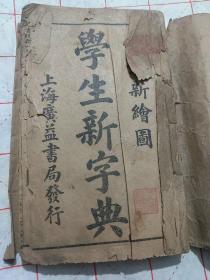 新繪圖
學生新字典
上海廣益書局發行